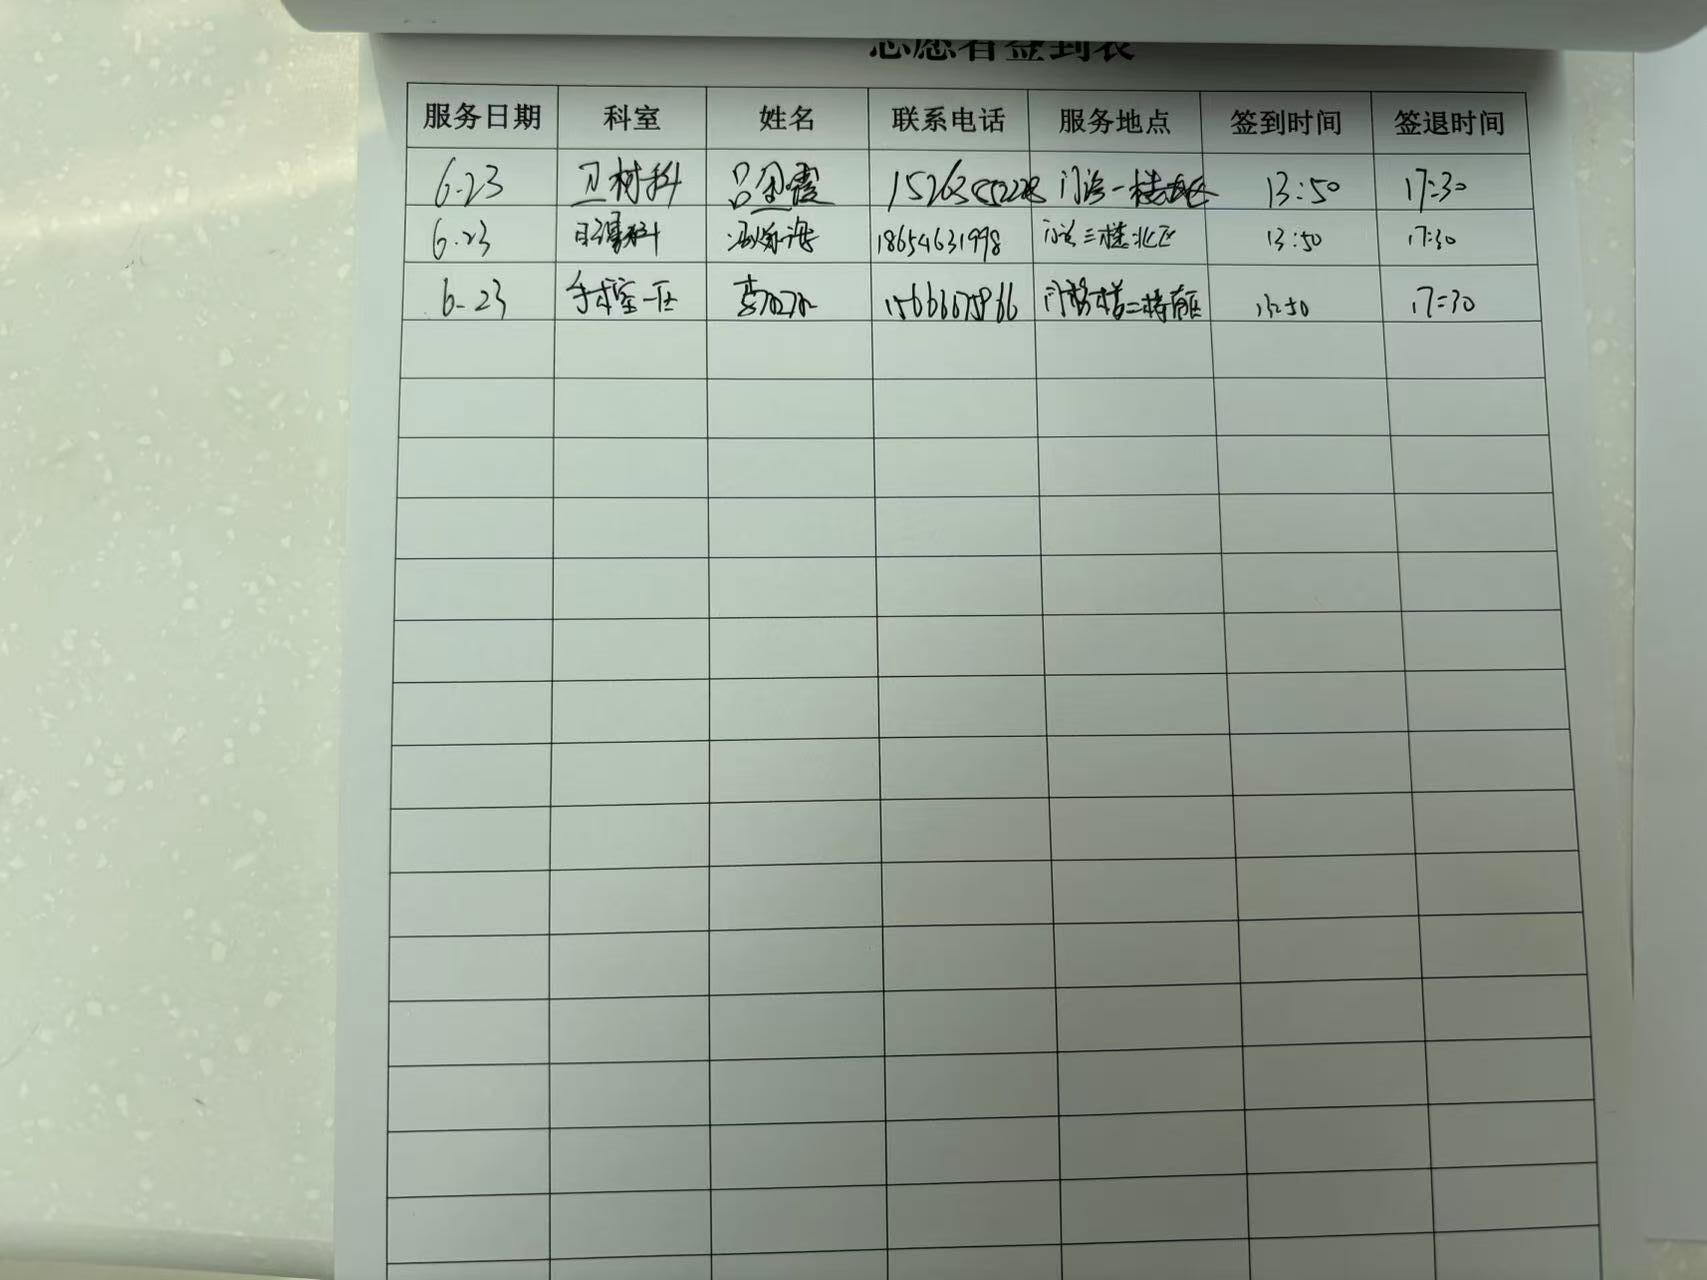 志愿者签到表
服务日期 科室 姓名 联系电话 服务地点 签到时间 签退时间
6-23 卫材科 吕金霞 门诊一楼 13:50 17:30
6.23 科 海 18654631998 门诊三楼北区 13:50 17:30
6-23 手术室一区 李 15666675966 门诊楼二楼南区 13:50 17:30